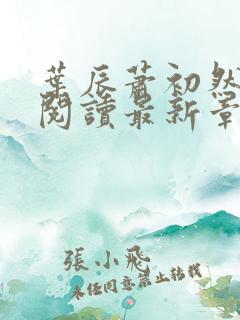 葉辰蕭初然
閱讀最新章
張小飛
未經同意禁止轉載